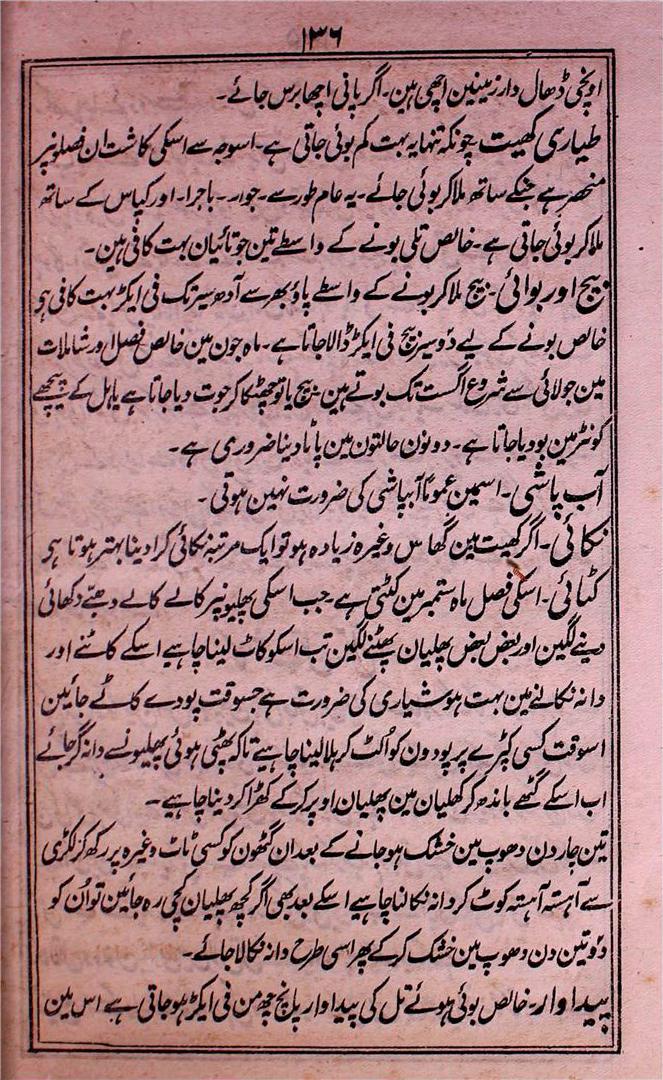 ۱۳۶
اونچی ڈھال دار زمینین اچھی ہین۔ اگر پانی اچھا برس جائے۔
طیاری کھیت۔ چونکہ تنہا یہ بہت کم بوئی جاتی ہے۔ اسوجہ سے اسکی کاشت ان فصلونپر
منحصر ہے جنکے ساتھ ملاکر بوئی جائے۔ یہ عام طور سے۔ جوار۔ باجرا۔ اور کپاس کے ساتھ
ملاکر بوئی جاتی ہے۔ خالص تلی بونے کے واسطے تین جوتائیان بہت کافی ہین۔
بیج اور بوائی۔ بیج ملاکر بونے کے واسطے پاؤ بھر سے آدھ سیر تک فی ایکڑ بہت کافی ہی
خالص بونے کے لیے دوسیر بیج فی ایکڑ ڈالا جاتا ہے۔ ماہ جون مین خالص فصل اور شاملات
مین جولائی سے شروع اگست تک بوتے ہین۔ بیج یا تو چھٹکا کر جوت دیا جاتا ہے یا ہل کے پیچھے
کونڑ مین بودیا جاتا ہے۔ دونون حالتون مین پاٹا دینا ضروری ہے۔
آب پاشی۔ اسمین عموماً آبپاشی کی ضرورت نہین ہوتی۔
نکائی۔ اگر کھیت مین گھاس وغیرہ زیادہ ہو تو ایک مرتبہ نکائی کرادینا بہتر ہوتا ہی
کٹائی۔ اسکی فصل ماہ ستمبر مین کٹتی ہے۔ جب اسکی پھلیونپر کالے کالے دھبّے دکھائی
دینے لگین اور بعض بعض پھلیان پھٹنے لگین تب اسکو کاٹ لینا چاہیے اسکے کاٹنے اور
دانہ نکالنے مین بہت ہوشیاری کی ضرورت ہے جسوقت پودے کاٹے جائین
اسوقت کسی کپڑے پر پودون کو اُلٹ کر ہلا لینا چاہیے تاکہ پھٹی ہوئی پھلیونسے دانہ گرجائے
اب اسکے گٹھے باندھ کر کھلیان مین پھلیان اوپر کرکے کھڑا کردینا چاہیے۔
تین چار دن دھوپ مین خشک ہوجانے کے بعد ان گٹھون کو کسی ٹاٹ وغیرہ پر رکھ کر لکڑی
سے آہستہ آہستہ کوٹ کر دانہ نکالنا چاہیے اسکے بعد بھی اگر کچھ پھلیان کچی رہ جائین تو اُن کو
دوتین دن دھوپ مین خشک کرکے پھر اسی طرح دانہ نکالا جائے۔
پیداوار۔ خالص بوئی ہوئے تل کی پیداوار پانچ چھ من فی ایکڑ ہوجاتی ہے اس مین